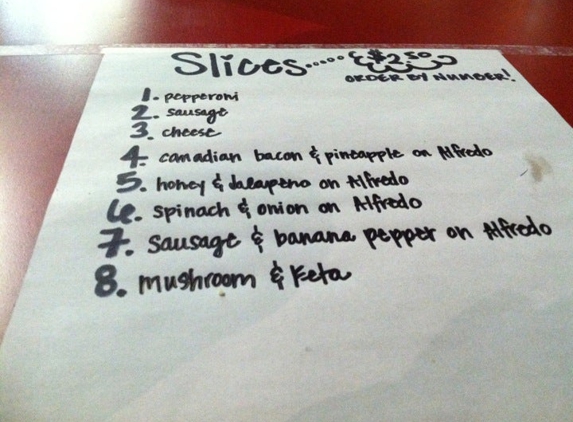 Slices..... $2.50
ORDER BY NUMBER!
1. pepperoni
2. sausage
3. cheese
4. canadian bacon & pineapple on Alfredo
5. honey & Jalapeno on Alfredo
6. spinach & onion on Alfredo
7. sausage & banana pepper on Alfredo
8. mushroom & Feta